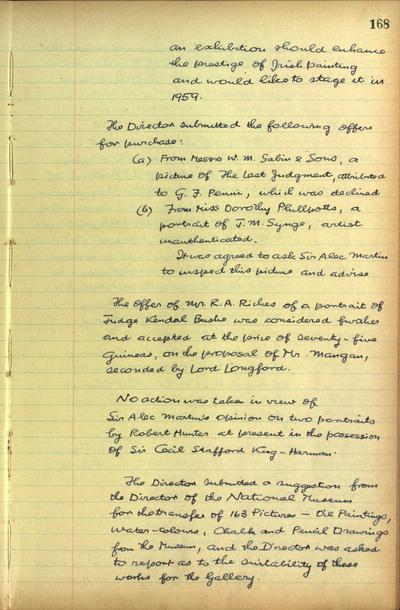 168
an exhibition should enhance
the prestige of Irish painting
and would like to stage it in
1959.
The Director submitted the following offers
for purchase:
(a) From Messrs W. M. Sabin & Sons, a
picture of The Last Judgment, attributed
to G. F. Penni, which was declined
(b) From Miss Dorothy Phillpotts, a
portrait of J. M. Synge, artist
unauthenticated.
It was agreed to ask Sir Alec Martin
to inspect this picture and advise
The offer of Mr. R. A. Riches of a portrait of
Judge Kendal Bushe was considered further
and accepted at the price of seventy-five
guineas, on the proposal of Mr. Mangan,
seconded by Lord Longford.
No action was taken in view of
Sir Alec Martin's opinion on two portraits
by Robert Hunter at present in the possession
of Sir Cecil Stafford King-Harman.
The Director submitted a suggestion from
the Director of the National Museum
for the transfer of 163 Pictures – Oil Paintings,
Water-colours, Chalk and Pencil Drawings
from the Museum, and the Director was asked
to report as to the suitability of these
works for the Gallery.